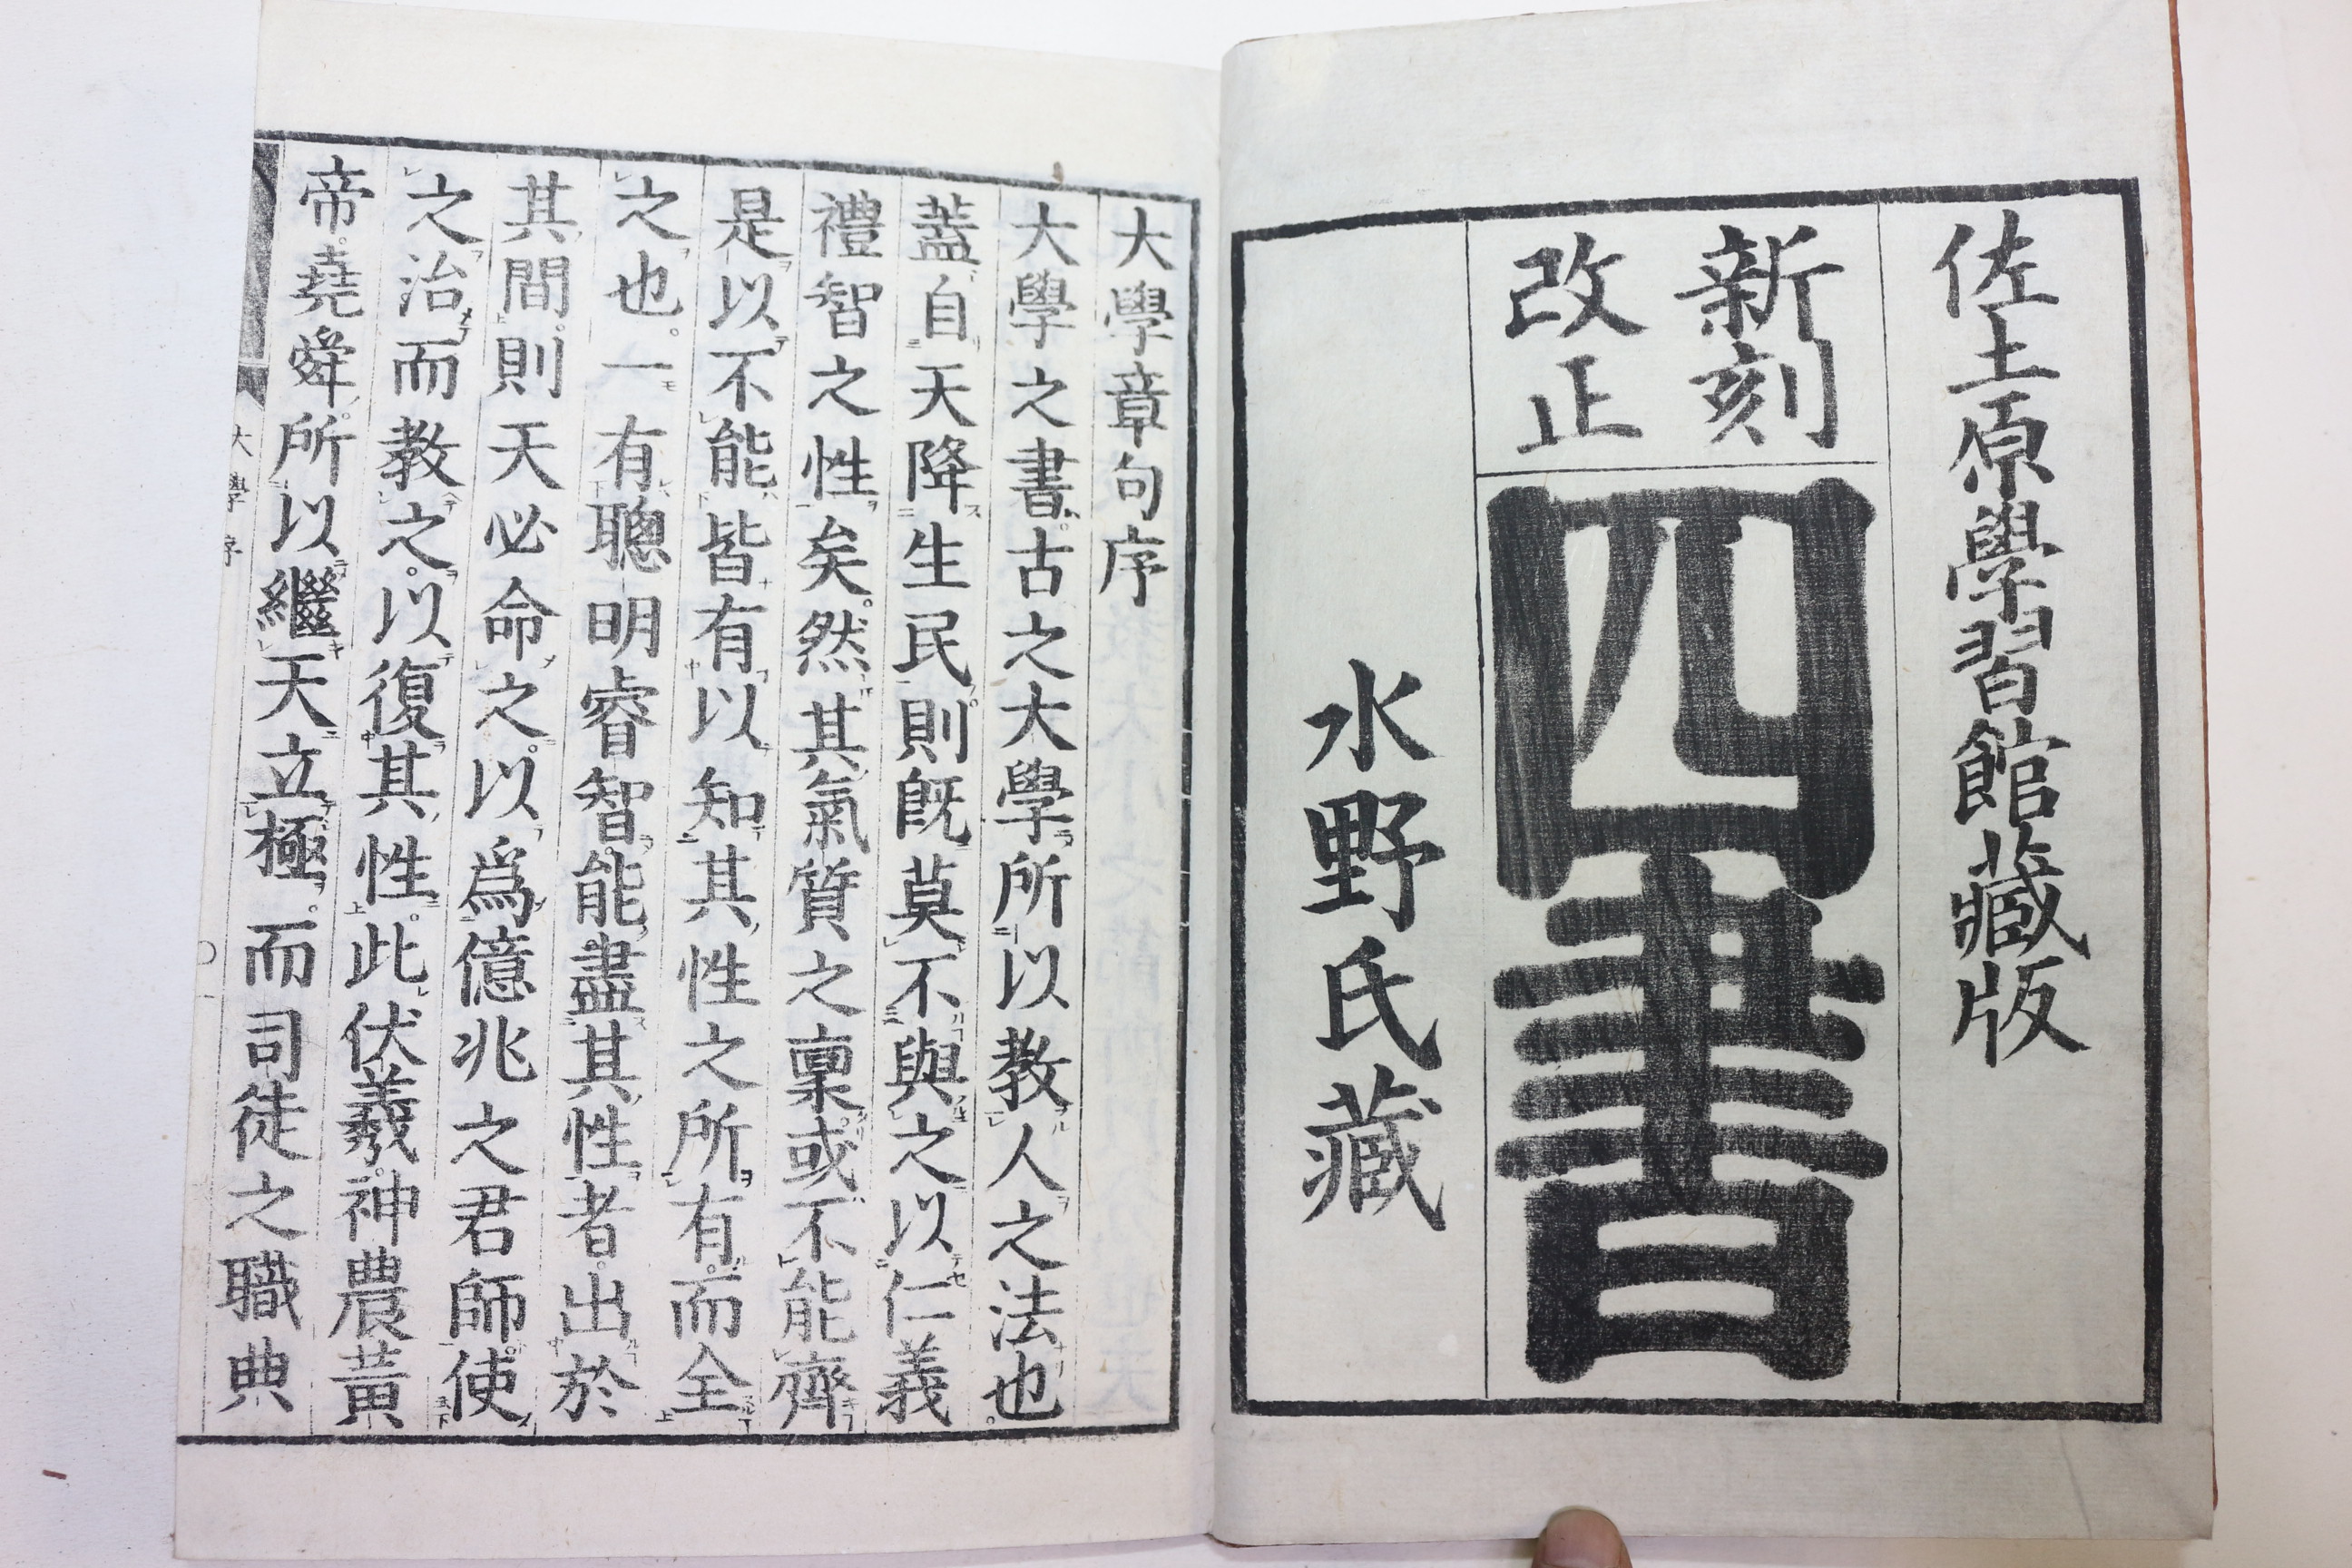 佐土原學習館藏版
新刻
改正
四書
水野氏藏
大學章句序
大學之書。古之大學所以教人之法也。
蓋自天降生民。則既莫不與之以仁義
禮智之性矣。然其氣質之稟或不能齊
是以不能皆有以知其性之所有。而全
之也。一有聰明睿智能盡其性者。出於
其間。則天必命之。以爲億兆之君師。使
之治而教之。以復其性。此伏羲。神農黃
帝。堯舜。所以繼天立極。而司徒之職典
大學序